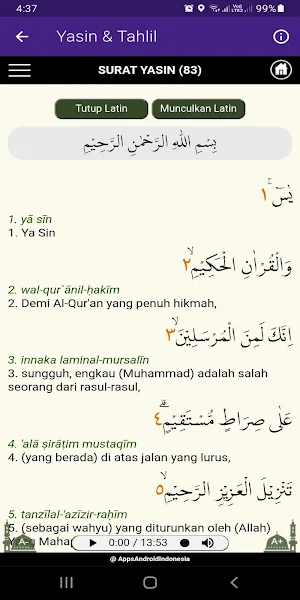 4:37
99%
Yasin & Tahlil
SURAT YASIN (83)
Tutup Latin
Munculkan Latin
بِسْمِ اللّٰهِ الرَّحْمٰنِ الرَّحِيْمِ
يٰسۤ ۚ ١
1. yā sīn
1. Ya Sin
وَالْقُرْاٰنِ الْحَكِيْمِۙ ٢
2. wal-qur`ānil-ḥakīm
2. Demi Al-Qur'an yang penuh hikmah,
اِنَّكَ لَمِنَ الْمُرْسَلِيْنَۙ ٣
3. innaka laminal-mursalīn
3. sungguh, engkau (Muhammad) adalah salah
seorang dari rasul-rasul,
عَلٰى صِرَاطٍ مُّسْتَقِيْمٍۗ ٤
4. 'alā ṣirāṭim mustaqīm
4. (yang berada) di atas jalan yang lurus,
تَنْزِيْلَ الْعَزِيْزِ الرَّحِيْمِۙ ٥
5. tanzīlal-'azīzir-raḥīm
5. (sebagai wahyu) yang diturunkan oleh (Allah)
A-
0:00 / 13:53
A+
@ AppsAndroidIndonesia